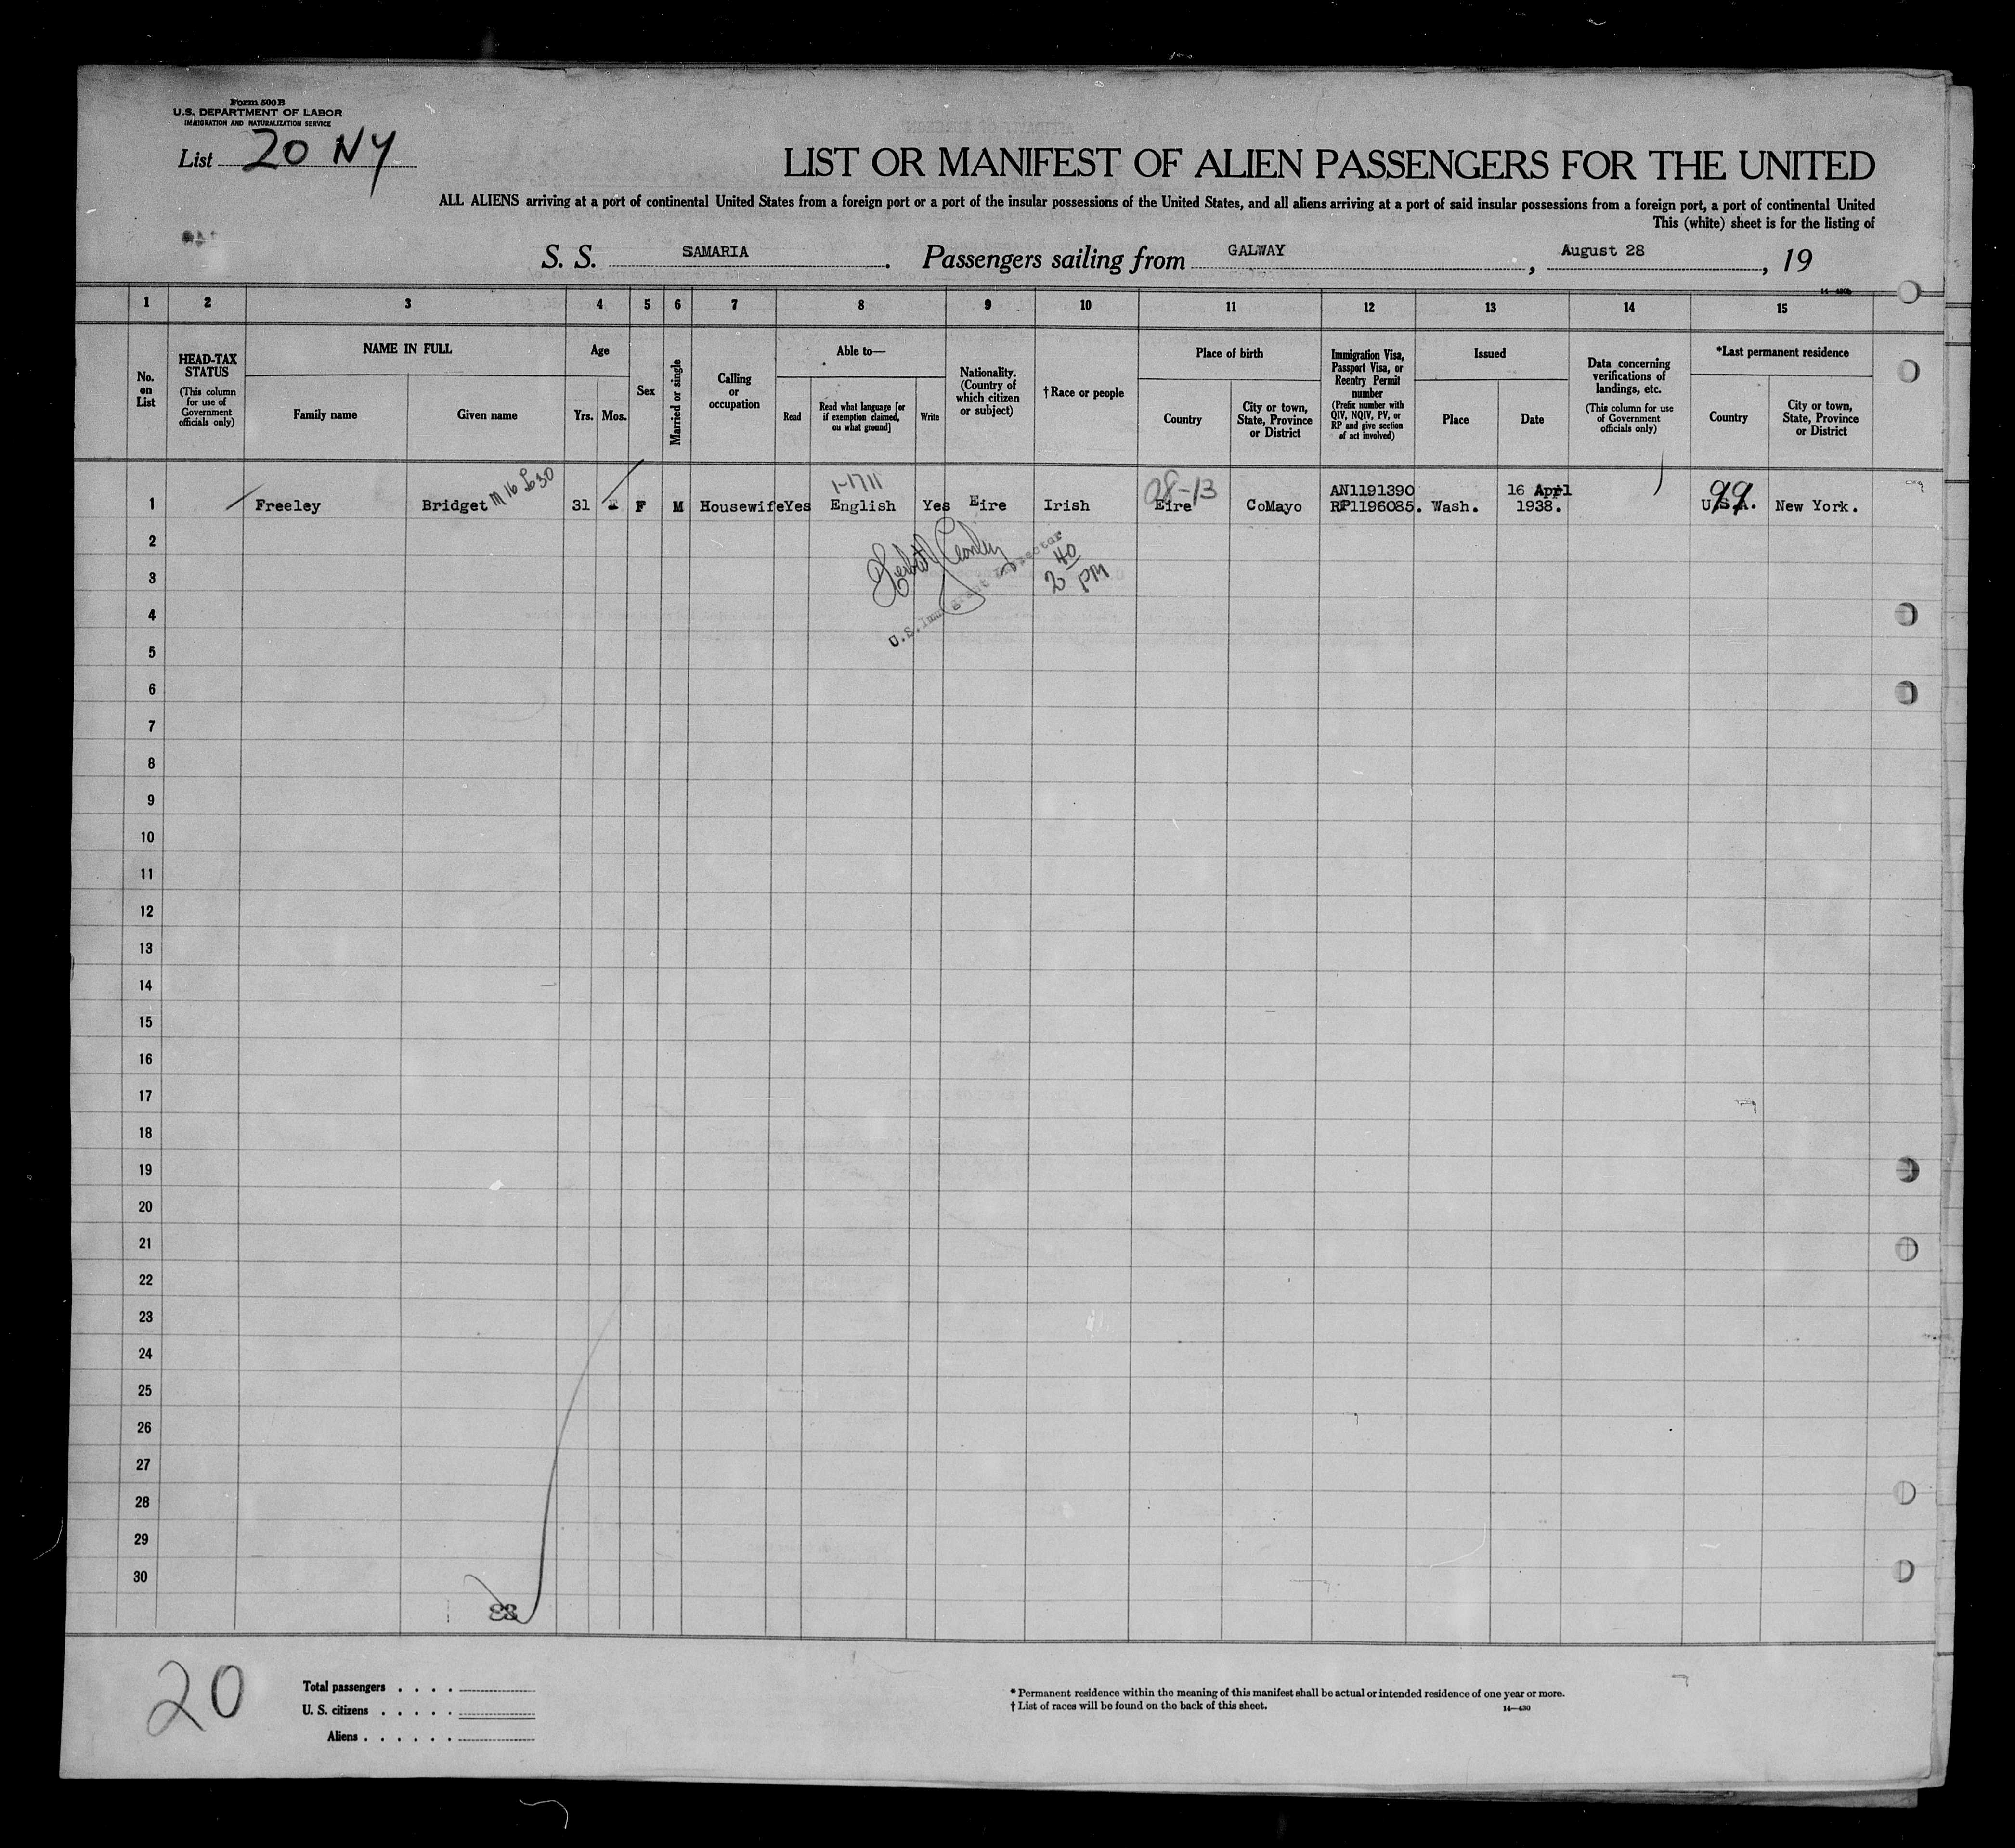 Form 500 B
U.S. DEPARTMENT OF LABOR
IMMIGRATION AND NATURALIZATION SERVICE
List 20 NY
LIST OR MANIFEST OF ALIEN PASSENGERS FOR THE UNITED
ALL ALIENS arriving at a port of continental United States from a foreign port or a port of the insular possessions of the United States, and all aliens arriving at a port of said insular possessions from a foreign port, a port of continental United
This (white) sheet is for the listing of
S. S. SAMARIA. Passengers sailing from GALWAY, August 28, 19
1 2 3 4 5 6 7 8 9 10 11 12 13 14 15
No. on List
HEAD-TAX STATUS
(This column for use of Government officials only)
NAME IN FULL
Family name
Given name
Age
Yrs.
Mos.
Sex
Married or single
Calling or occupation
Able to—
Read
Read what language [or if exemption claimed, on what ground]
Write
Nationality. (Country of which citizen or subject)
† Race or people
Place of birth
Country
City or town, State, Province or District
Immigration Visa, Passport Visa, or Reentry Permit number
(Prefix number with QIV, NQIV, PV, or RP and give section of act involved)
Issued
Place
Date
Data concerning verifications of landings, etc.
(This column for use of Government officials only)
*Last permanent residence
Country
City or town, State, Province or District
1-1711
08-13
99
AN1191390
16 Appl
1 Freeley Bridget 31 F M Housewife Yes English Yes Eire Irish Eire CoMayo RP1196085. Wash. 1938. U.S.A. New York.
2
3
4
5
6
7
8
9
10
11
12
13
14
15
16
17
18
19
20
21
22
23
24
25
26
27
28
29
30
2 40 PM
U.S. Immigrant Inspector
20
Total passengers . . . .
U. S. citizens . . . . .
Aliens . . . . . .
* Permanent residence within the meaning of this manifest shall be actual or intended residence of one year or more.
† List of races will be found on the back of this sheet.
14—430